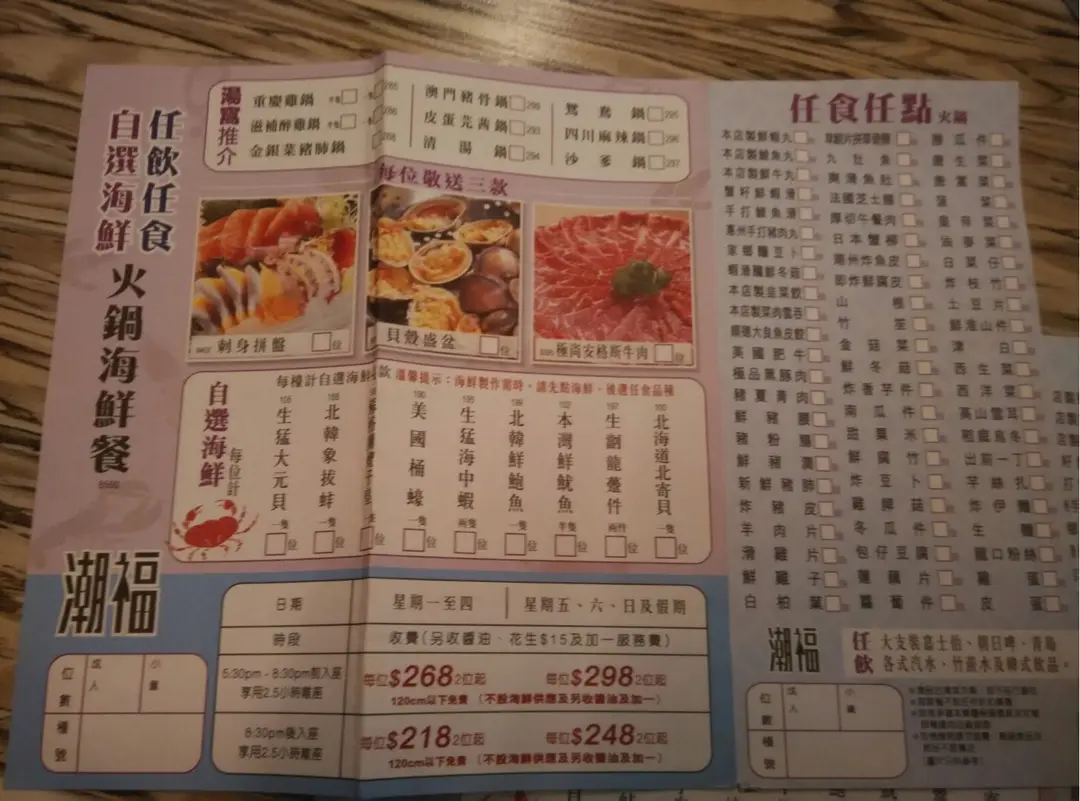 任飲任食
自選海鮮
火鍋海鮮餐
湯窩推介
重慶雞鍋
滋補醉雞鍋
金銀菜豬肺鍋
澳門豬骨鍋
皮蛋芫茜鍋 293
清湯鍋 294
鴛鴦鍋 295
四川麻辣鍋 296
沙爹鍋 297
每位敬送三款
刺身拼盤 位
貝殼盛盆 位
極尚安格斯牛肉 位
自選海鮮 每位計
溫馨提示：海鮮製作需時，請先點海鮮，後選任食品種
生猛大元貝 一隻 位
北韓象拔蚌 一隻 位
美國桶蠔 一隻 位
生猛海中蝦 兩隻 位
北韓鮮鮑魚 一隻 位
本灣鮮魷魚 半隻 位
生劏龍躉件 兩件 位
北海道北寄貝 一隻 位
潮福
日期 星期一至四 星期五、六、日及假期
時段 收費(另收醬油、花生$15及加一服務費)
5:30pm - 8:30pm前入座
享用2.5小時離座
每位$268 2位起 每位$298 2位起
120cm以下免費 (不設海鮮供應及另收醬油及加一)
8:30pm後入座
享用2.5小時離座
每位$218 2位起 每位$248 2位起
120cm以下免費 (不設海鮮供應及另收醬油及加一)
位數 成人 小童
檯號
任食任點 火鍋
本店製鮮蝦丸
本店製鯪魚丸
本店製鮮牛丸
蟹籽鮮蝦滑
手打鯪魚滑
惠州手打豬肉丸
家鄉釀豆卜
蝦滑釀鮮冬菇
本店製韭菜餃
本店製菜肉雲吞
順德大良魚皮餃
美國肥牛
極品黑豚肉
豬夏青肉
鮮豬膶
豬粉腸
鮮豬潤
新鮮豬肺
炸豬皮
羊肉片
滑雞片
鮮雞子
白柏葉
九肚魚
爽滑魚肚
法國芝士腸
厚切午餐肉
日本蟹柳
潮州炸魚皮
即炸鮮腐皮
山根
竹笙
金菇菜
鮮冬菇
炸香芋件
南瓜件
甜粟米
鮮腐竹
炸豆卜
雞脾菇
冬瓜件
包仔豆腐
蓮藕片
蘿蔔件
勝瓜件
唐生菜
唐蒿菜
菠菜
皇帝菜
油麥菜
白菜仔
炸枝竹
土豆片
鮮淮山件
津白
西生菜
西洋菜
高山雲耳
出前一丁
芋絲扎
炸伊麵
生麵
龍口粉絲
雞蛋
皮蛋
潮福
任飲
大支裝嘉士伯、朝日啤、青島
各式汽水、竹蔗水及樽式飲品。
位數 成人 小童
檯號